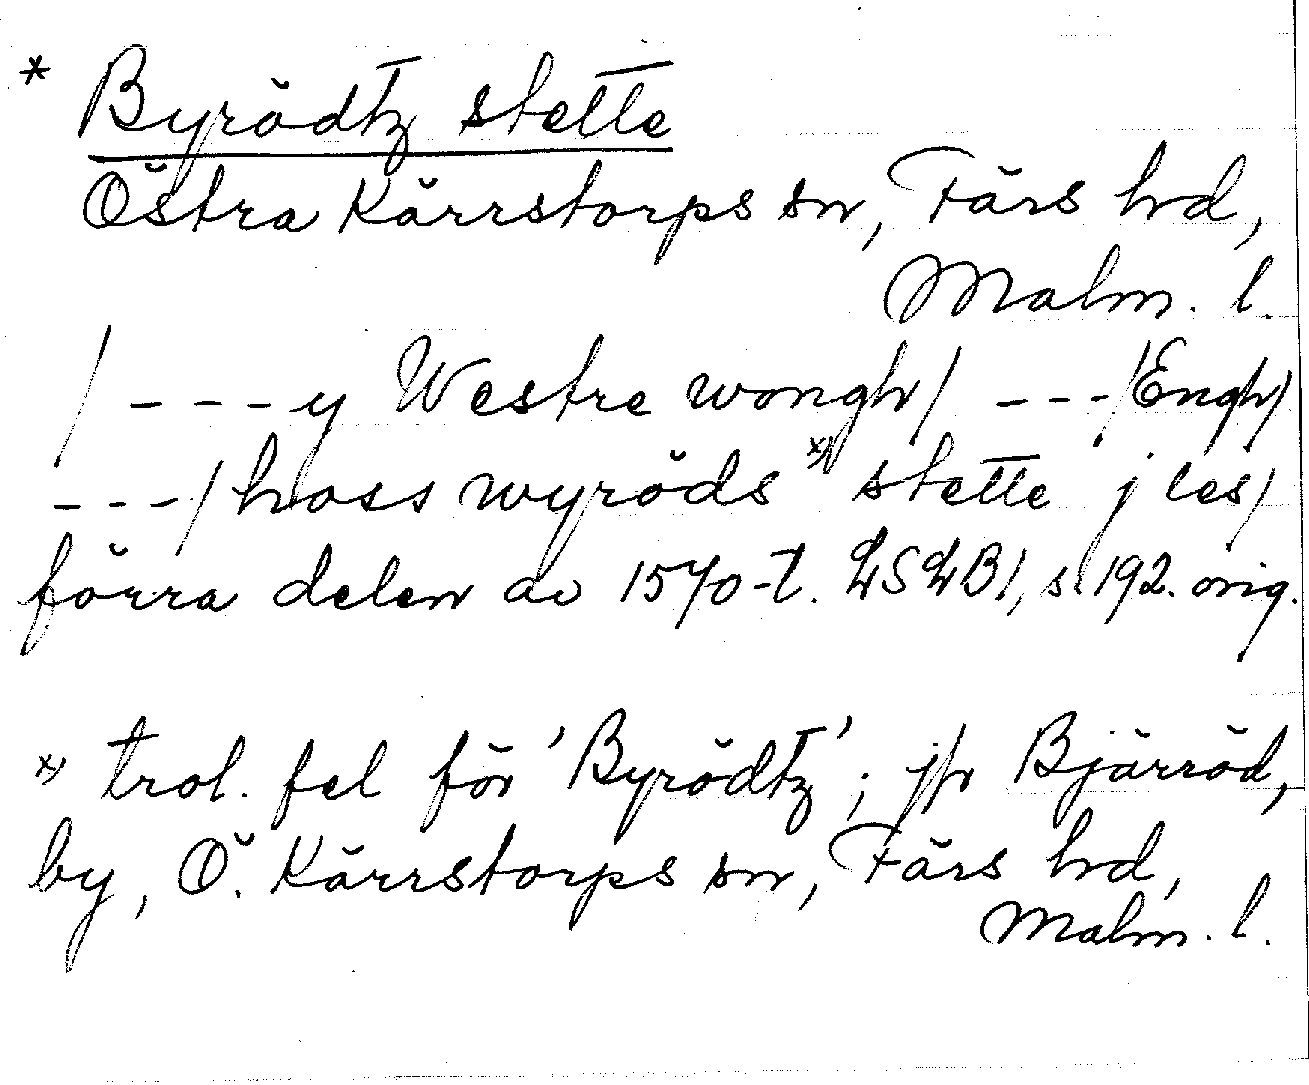 * Byrödtz stette
Östra Kärrstorps sn, Färs hd,
Malm. l.
/ - - - y Westre wongh/ - - - /Engh/
- - - / hoss wyröds x) stette j les/
förra delen av 1570-t. LSLB1, s. 192. orig.
x) trol. fel för 'Byrödtz'; jfr Bjärröd,
by, Ö. Kärrstorps sn, Färs hd,
Malm. l.